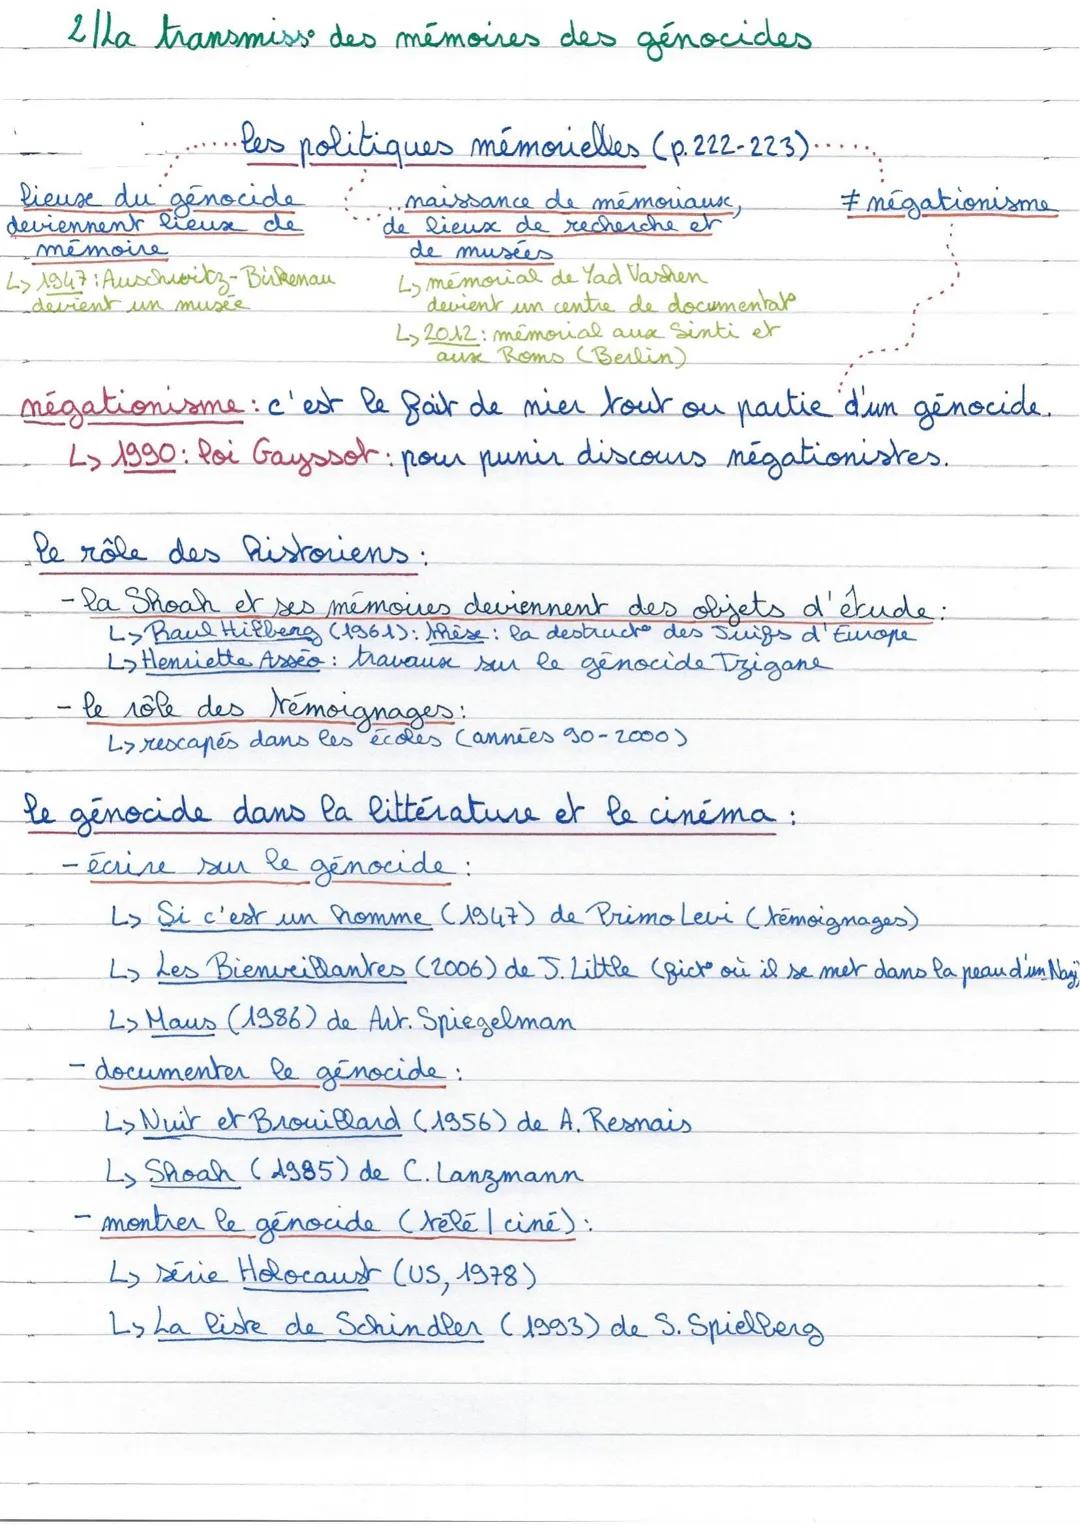 2/ La transmiss° des mémoires des génocides
les politiques mémorielles (p.222-223)
lieux du génocide
deviennent lieux de
mémoire
↳ 1947 : Auschwitz-Birkenau
devient un musée
naissance de mémoriaux,
de lieux de recherche et
de musées
↳ mémorial de Yad Vashen
devient un centre de documentat°
↳ 2012 : mémorial aux Sinti et
aux Roms (Berlin)
≠ négationisme
négationisme : c'est le fait de nier tout ou partie d'un génocide.
↳ 1990 : loi Gayssot : pour punir discours négationistes.
le rôle des historiens :
- la Shoah et ses mémoires deviennent des objets d'étude :
↳ Raul Hilberg (1961) : thèse : la destruct° des Juifs d'Europe
↳ Henriette Asséo : travaux sur le génocide Tzigane
- le rôle des témoignages :
↳ rescapés dans les écoles (années 90-2000)
le génocide dans la littérature et le cinéma :
- écrire sur le génocide :
↳ Si c'est un homme (1947) de Primo Levi (témoignages)
↳ Les Bienveillantes (2006) de J. Little (fict° où il se met dans la peau d'un Nazi)
↳ Maus (1986) de Art. Spiegelman
- documenter le génocide :
↳ Nuit et Brouillard (1956) de A. Resnais
↳ Shoah (1985) de C. Lanzmann
- montrer le génocide (télé / ciné) :
↳ série Holocaust (US, 1978)
↳ La liste de Schindler (1993) de S. Spielberg